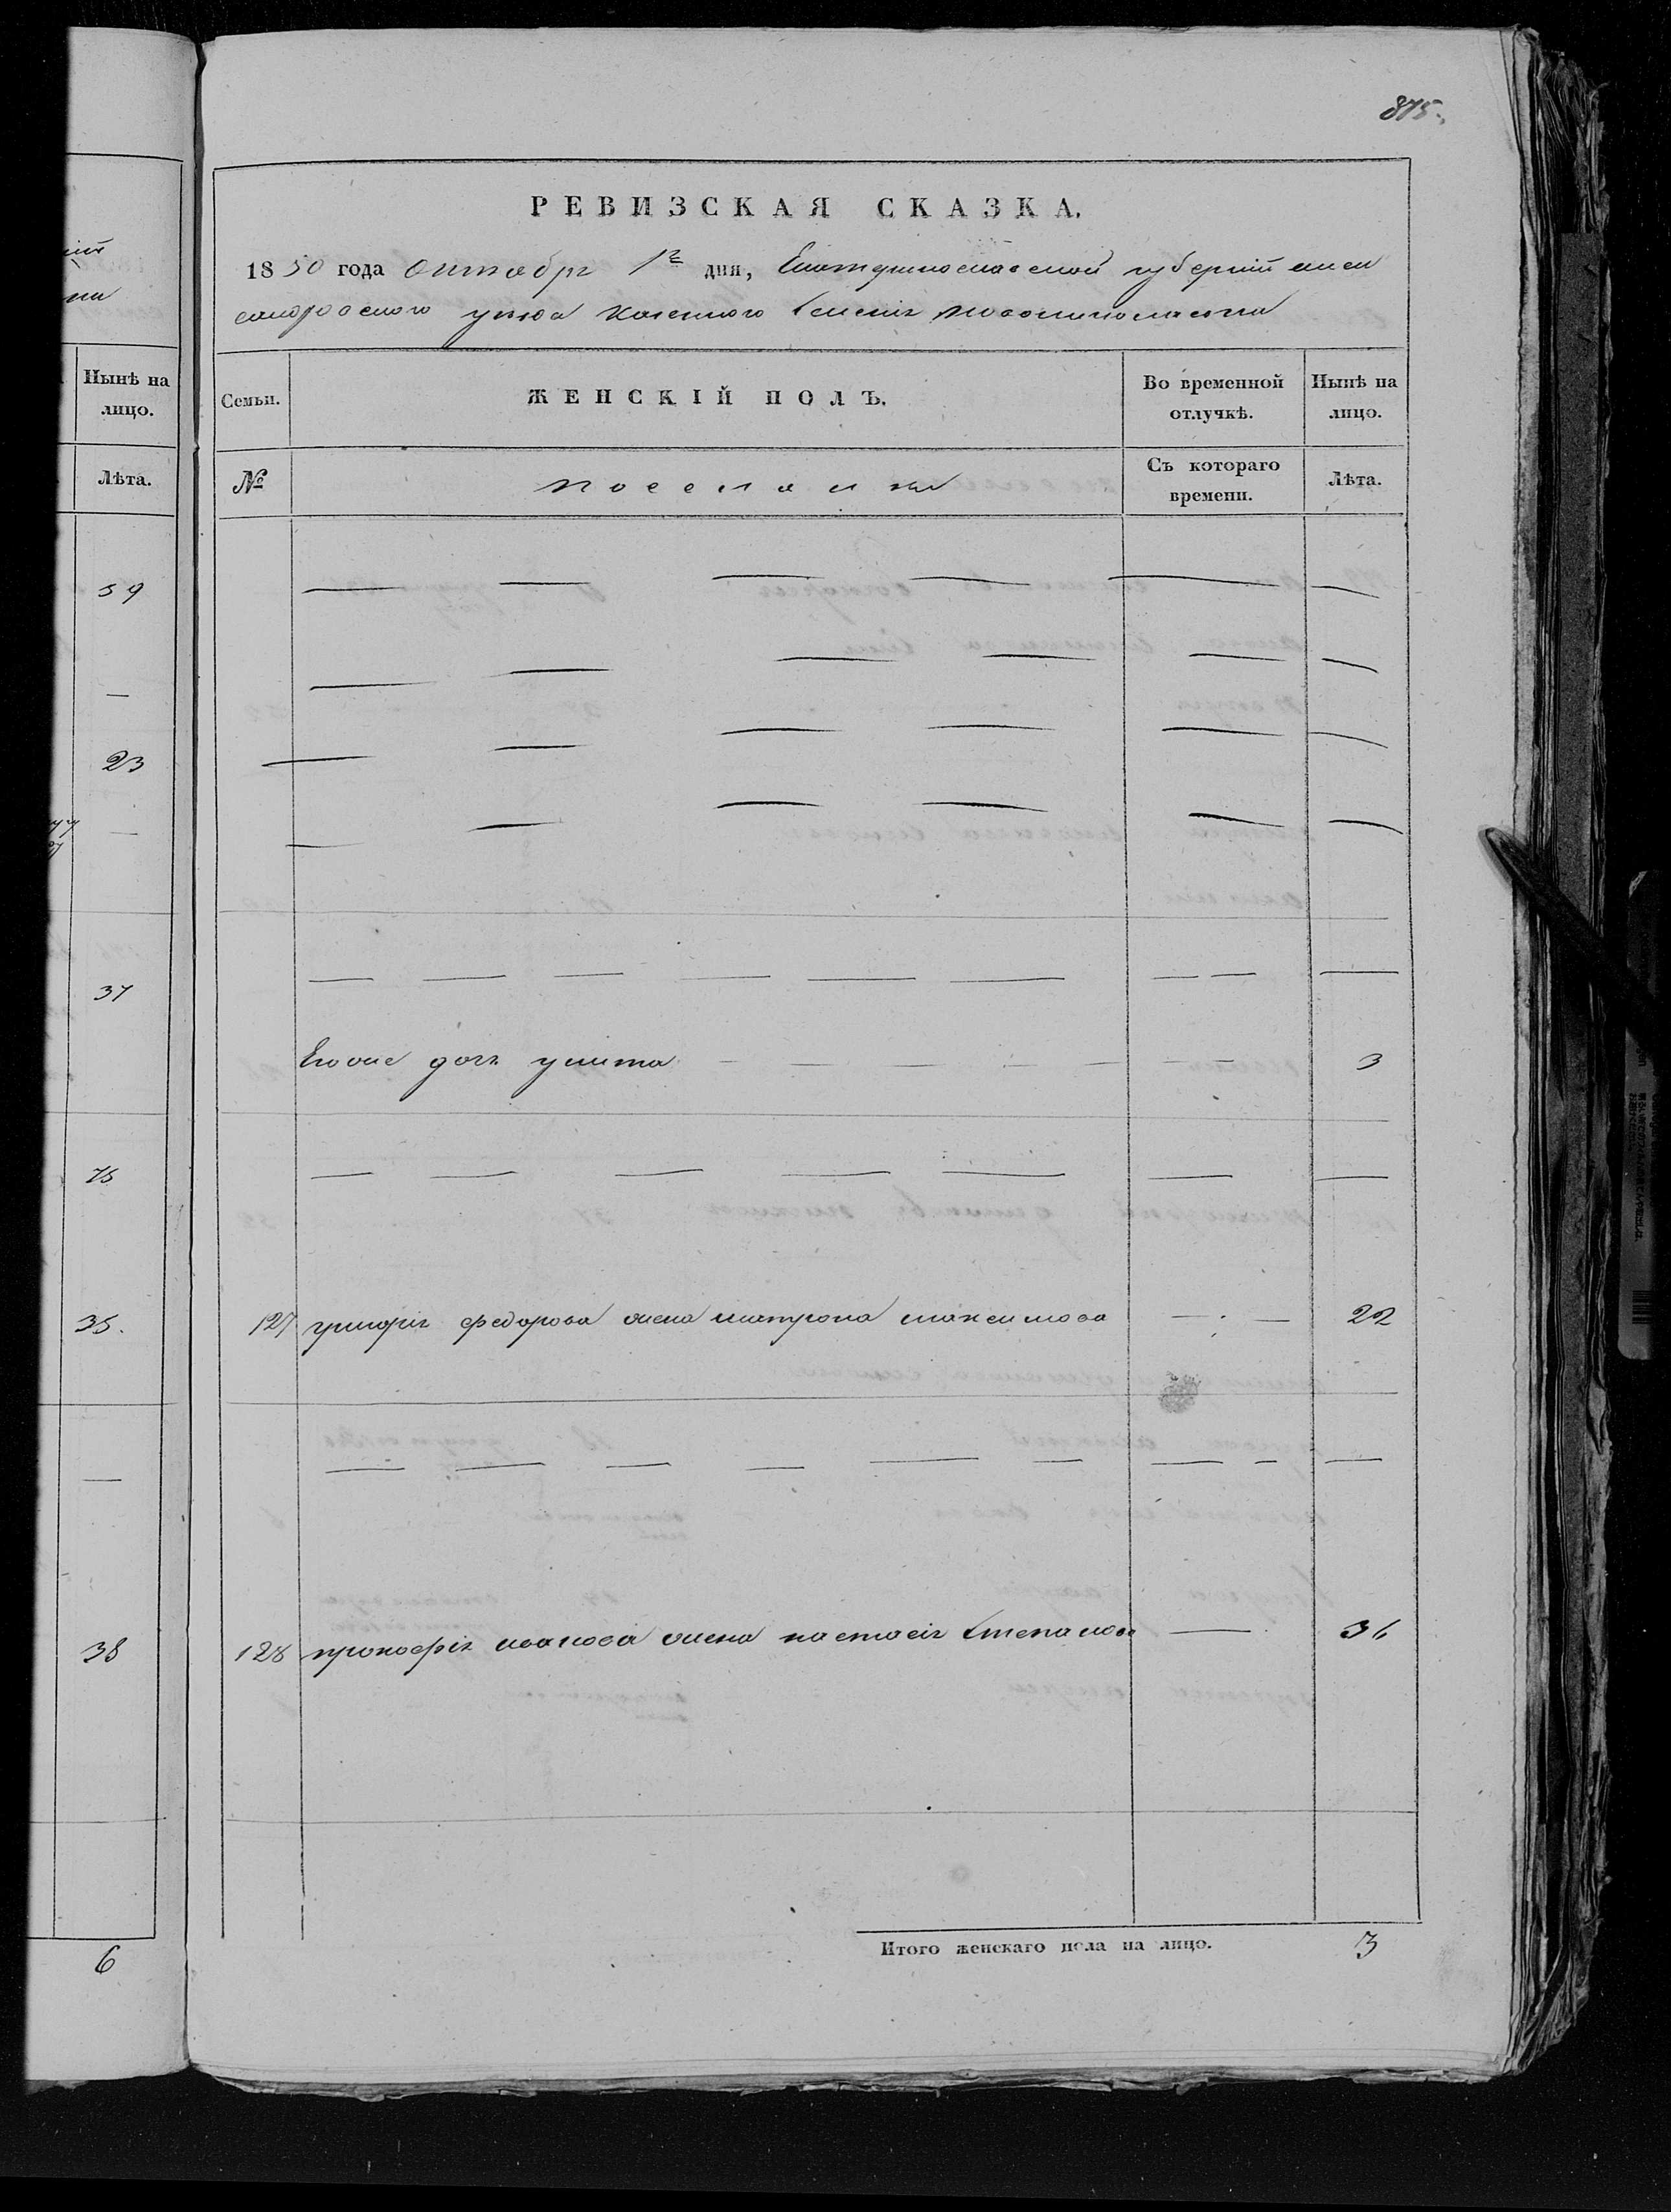 875.
РЕВИЗСКАЯ СКАЗКА.
1850 года октября 1го дня, Екатеринославской губерній алек
сандровского уезда казенного селенія новониколаевка
Нынѣ на лицо.
Семьи.
ЖЕНСКІЙ ПОЛЪ.
Во временной отлучкѣ.
Нынѣ на лицо.
Лѣта.
№
поселяны
Съ котораго времени.
Лѣта.
59
—
23
—
37
Его дочь улита 3
75
35. 127 григорія федорова жена матрона максимова 22
—
38 128 прокофія иванова жена настасія степанова 36
6
Итого женскаго пола на лицо. 3